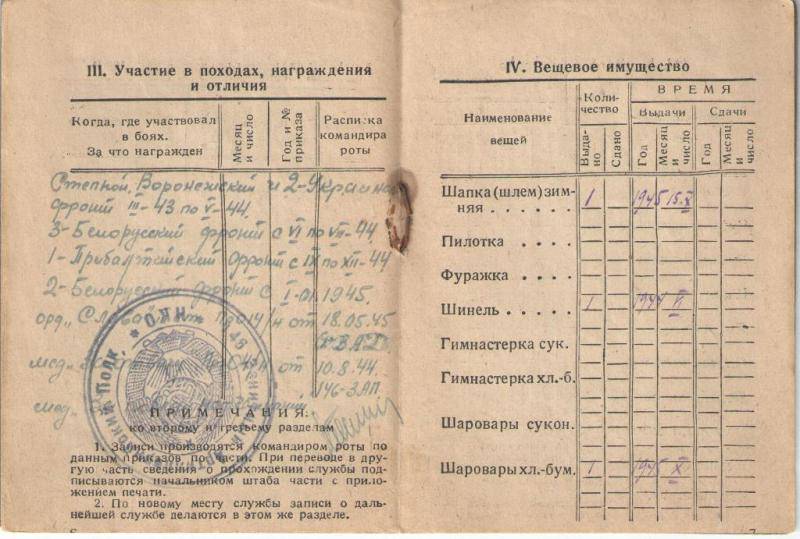 III. Участие в походах, награждения
и отличия
Когда, где участвовал
в боях.
За что награжден
Месяц
и число
Год и №
приказа
Расписка
командира
роты
Степной, Воронежский и 2-Украинс
фронт III-43 по V-44.
3-Белорусский фронт с VI по VII-44.
1-Прибалтайский фронт с IX по XII-44
2-Белорусский фронт с I-01.1945.
орд. „Слава от 18.05.45
мед. от 10.8.44.
146-ЗАП.
мед.
ПРИМЕЧАНИЯ
ко второму и третьему разделам
1. Записи производятся командиром роты по
данным приказов по части. При переводе в дру-
гую часть сведения о прохождении службы под-
писываются начальником штаба части с прило-
жением печати.
2. По новому месту службы записи о даль-
нейшей службе делаются в этом же разделе.
IV. Вещевое имущество
Наименование
вещей
Коли-
чество
ВРЕМЯ
Выдачи
Сдачи
Выда-
но
Сдано
Год
Месяц
и
число
Год
Месяц
и число
Шапка (шлем) зим-
няя . . . . . 1 1945 15.X
Пилотка . . . .
Фуражка . . . .
Шинель . . . . . 1 1944 VI
Гимнастерка сук.
Гимнастерка хл.-б.
Шаровары сукон.
Шаровары хл.-бум. 1 1945 X
7